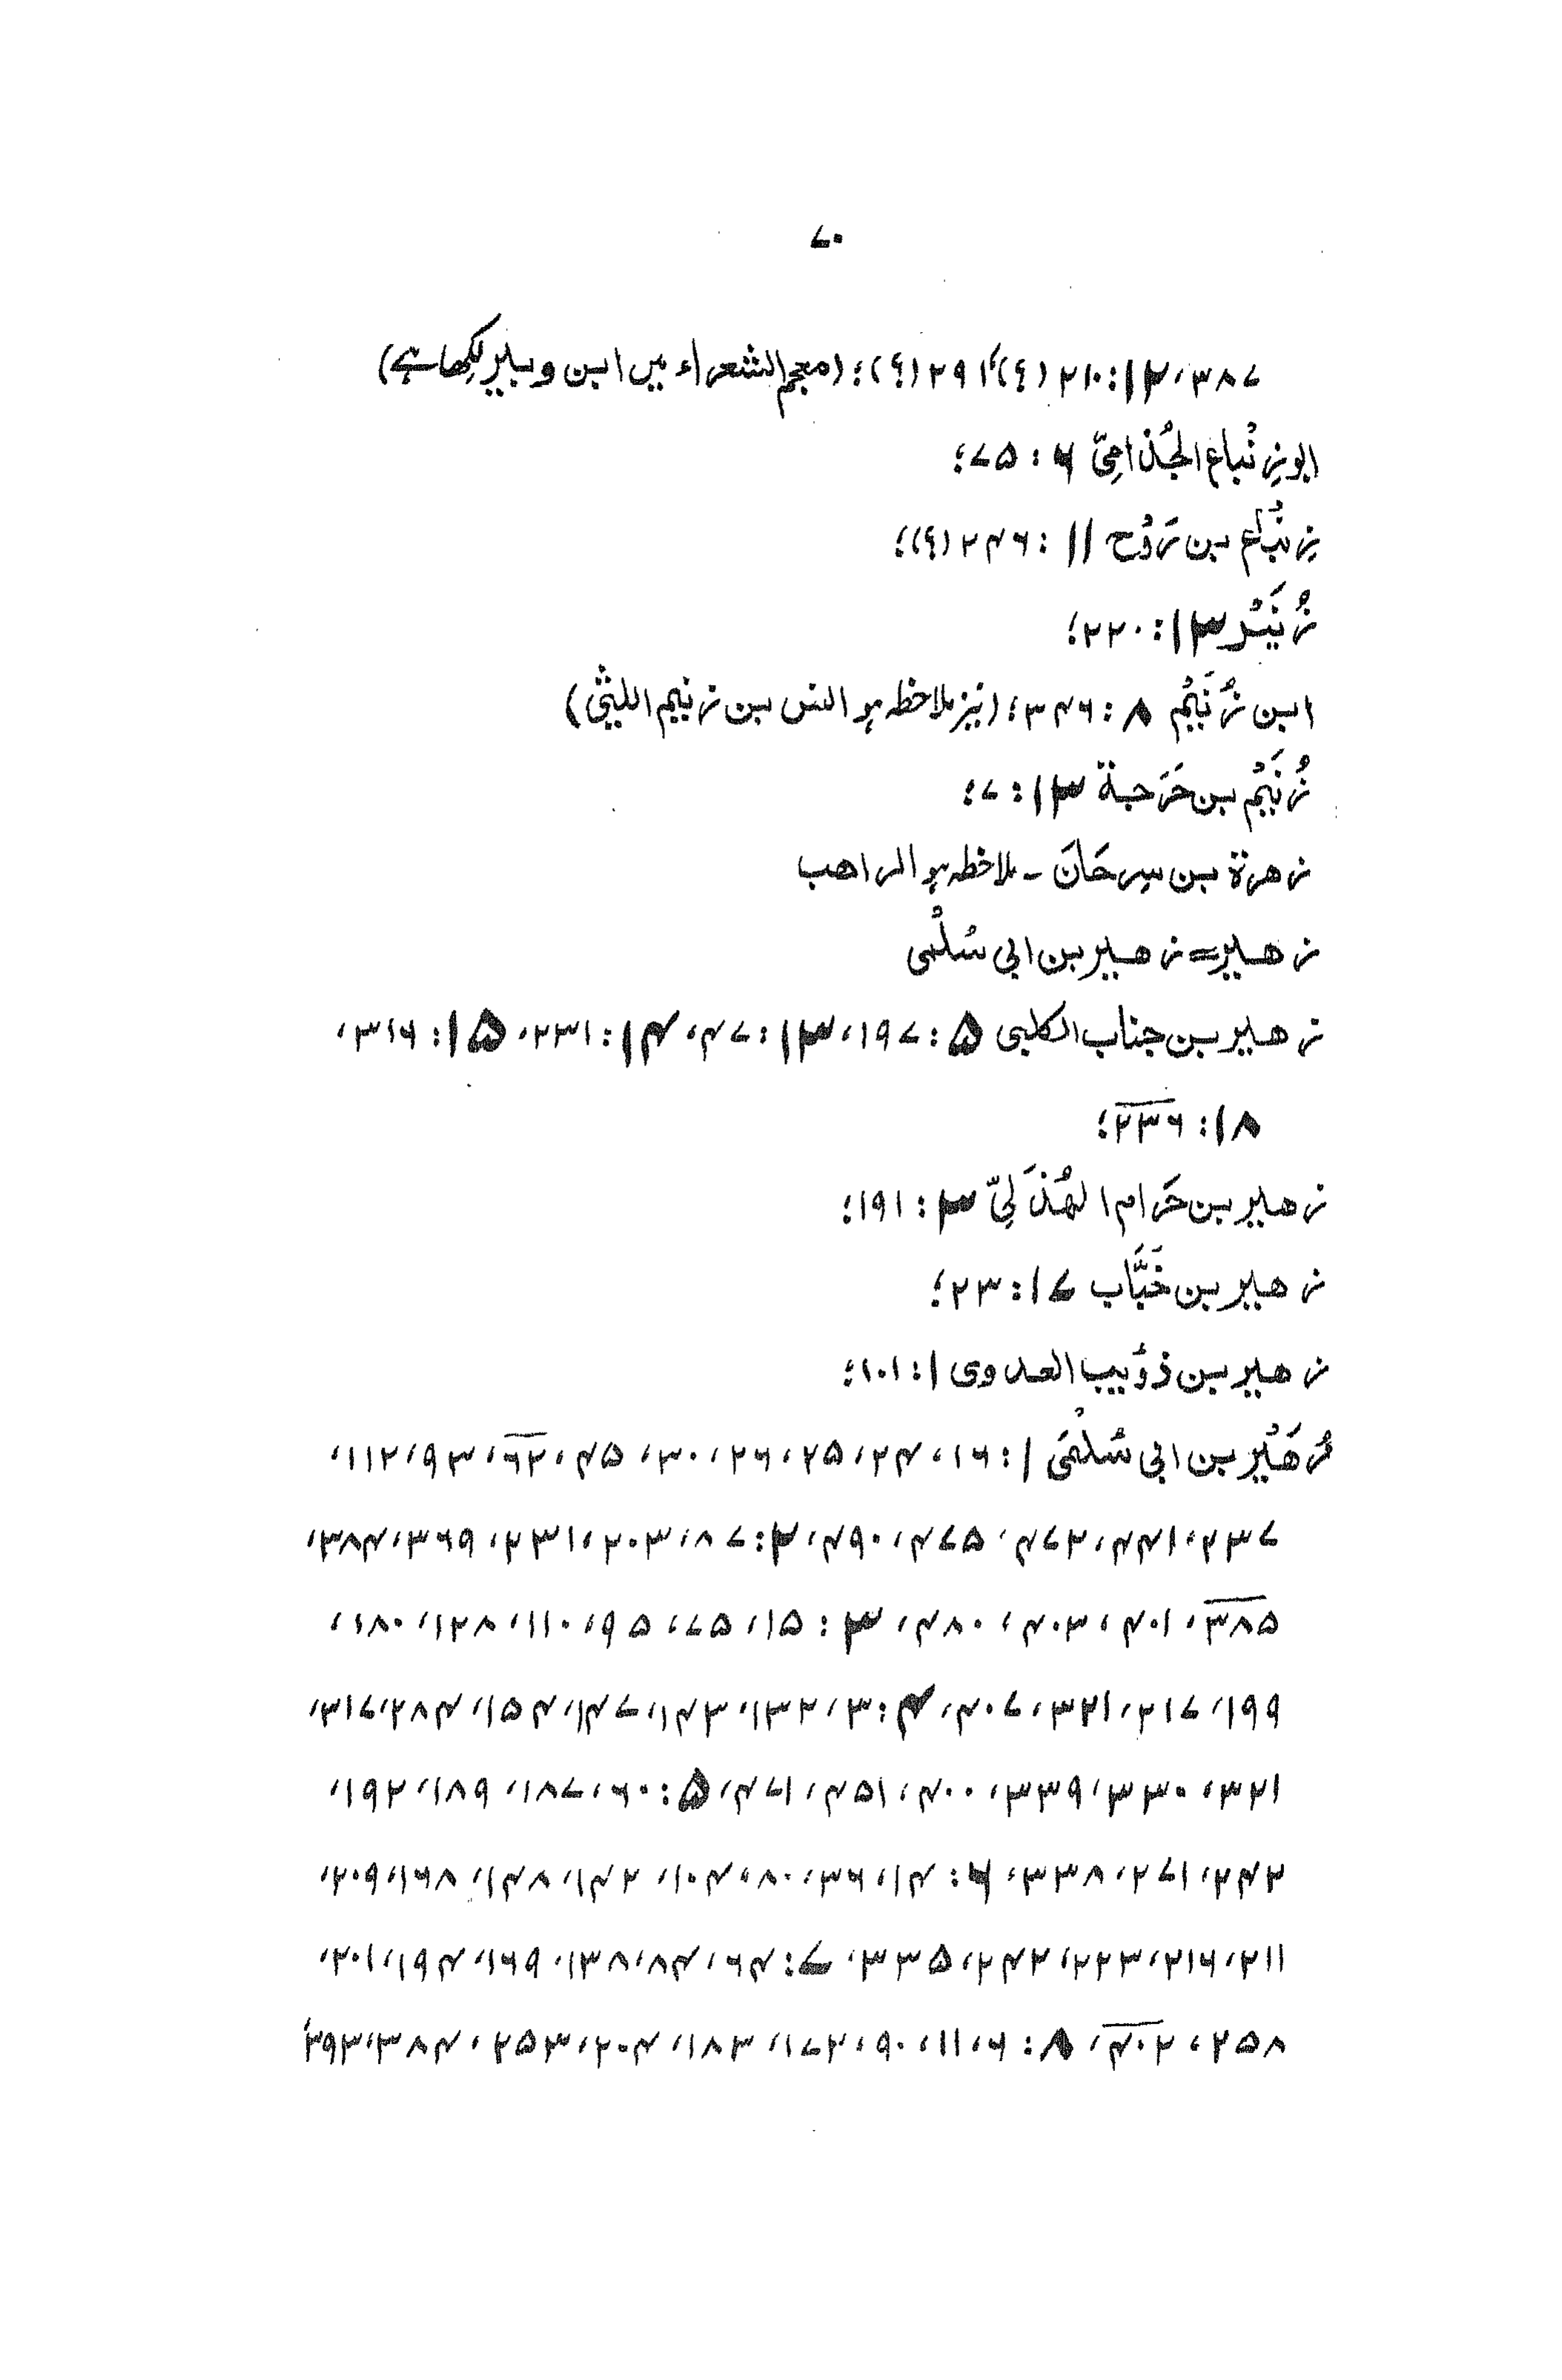 ۷۰
۳۸۷، ۱۲: ۲۱۰ (؟)، ۲۹۱ (؟)؛ (معجم الشعراء میں ابن وبیر لکھا ہے)
ابو زِنْباع الجُذامِیّ ۶: ۷۵؛
زِنْبَاع بن رَوْح ۱۱: ۲۴۶ (؟)؛
زُنَیْر ۱۳: ۲۲۰؛
ابن زُنَیْم ۸: ۳۴۶؛ (نیز ملاحظہ ہو انس بن زنیم اللیثی)
زُنَیْم بن حَرَجة ۱۳: ۷؛
زهرة بن سِرحَانَ ۔ ملاحظہ ہو الراهب
زهیر = زهیر بن ابی سُلْمی
زهیر بن جناب الکلبی ۵: ۱۹۷، ۱۳: ۴۷، ۱۴: ۲۳۱، ۱۵: ۳۱۶،
۱۸: ۲۳۶؛
زهیر بن حَرَام الهُذَلِیّ ۳: ۱۹۱؛
زهیر بن خَبَّاب ۱۷: ۲۳؛
زهیر بن ذؤَیب العدوی ۱: ۱۰۱؛
زُهَیْر بن ابی سُلْمَی ۱: ۱۶، ۲۴، ۲۵، ۲۶، ۳۰، ۴۵، ۶۲، ۹۳، ۱۱۲،
۲۳۷، ۴۴۱، ۴۷۲، ۴۷۵، ۴۹۰، ۲: ۷، ۸، ۲۰۳، ۲۳۱، ۳۶۹، ۳۸۴،
۳۸۵، ۴۰۱، ۴۰۳، ۴۸۰، ۳: ۱۵، ۷۵، ۹۵، ۱۱۰، ۱۲۸، ۱۸۰،
۱۹۹، ۲۱۷، ۳۲۱، ۴۰۷، ۴: ۳، ۱۳۲، ۱۴۳، ۱۴۷، ۱۵۴، ۲۸۴، ۳۱۷،
۳۲۱، ۳۳۰، ۳۳۹، ۴۰۰، ۴۵۱، ۴۷۱، ۵: ۶۰، ۱۸۷، ۱۸۹، ۱۹۲،
۲۴۲، ۲۷۱، ۳۳۸، ۶: ۱۴، ۳۶، ۸۰، ۱۰۴، ۱۴۲، ۱۴۸، ۱۶۸، ۲۰۹،
۲۱۱، ۲۱۶، ۲۲۳، ۲۴۲، ۳۳۵، ۷: ۴۶، ۸۴، ۱۳۸، ۱۶۹، ۱۹۴، ۲۰۱،
۲۵۸، ۴۰۲، ۸: ۶، ۱۱، ۹۰، ۱۷۲، ۱۸۳، ۲۰۴، ۲۵۳، ۳۸۴، ۳۹۳،